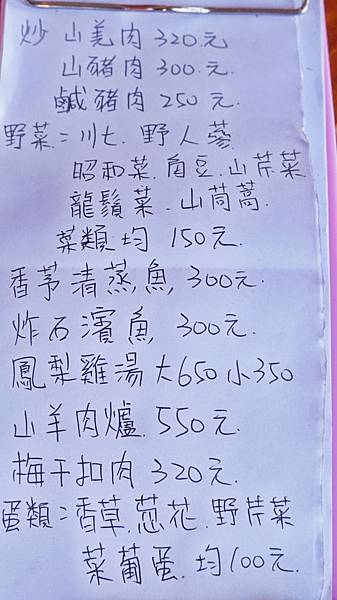 炒 山羌肉 320元
山豬肉 300元.
鹹豬肉 250元.
野菜:川七.野人蔘.
昭和菜.角豆.山芹菜
龍鬚菜.山茼蒿.
菜類均 150元.
香茅清蒸魚 300元.
炸石濱魚 300元.
鳳梨雞湯大650小350
山羊肉爐.550元.
梅干扣肉 320元.
蛋類:香草.蔥花.野芹菜
菜葡蛋.均100元.